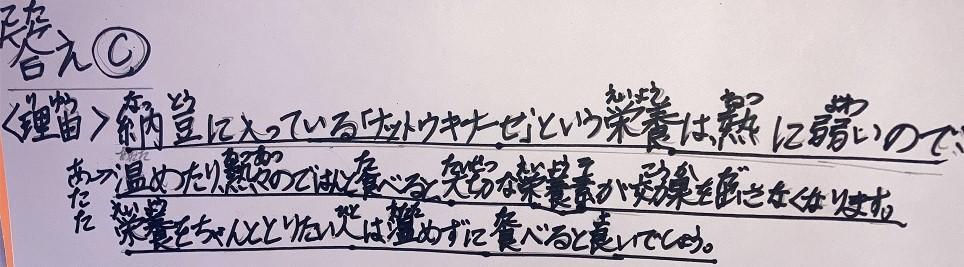 答え Ⓒ
<理由>納豆に入っている「ナットウキナーゼ」という栄養は、熱に弱いので、
温めたり、熱々のごはんと食べると大切な栄養素が効果を出さなくなります。
栄養をちゃんととりたい人は温めずに食べると良いでしょう。